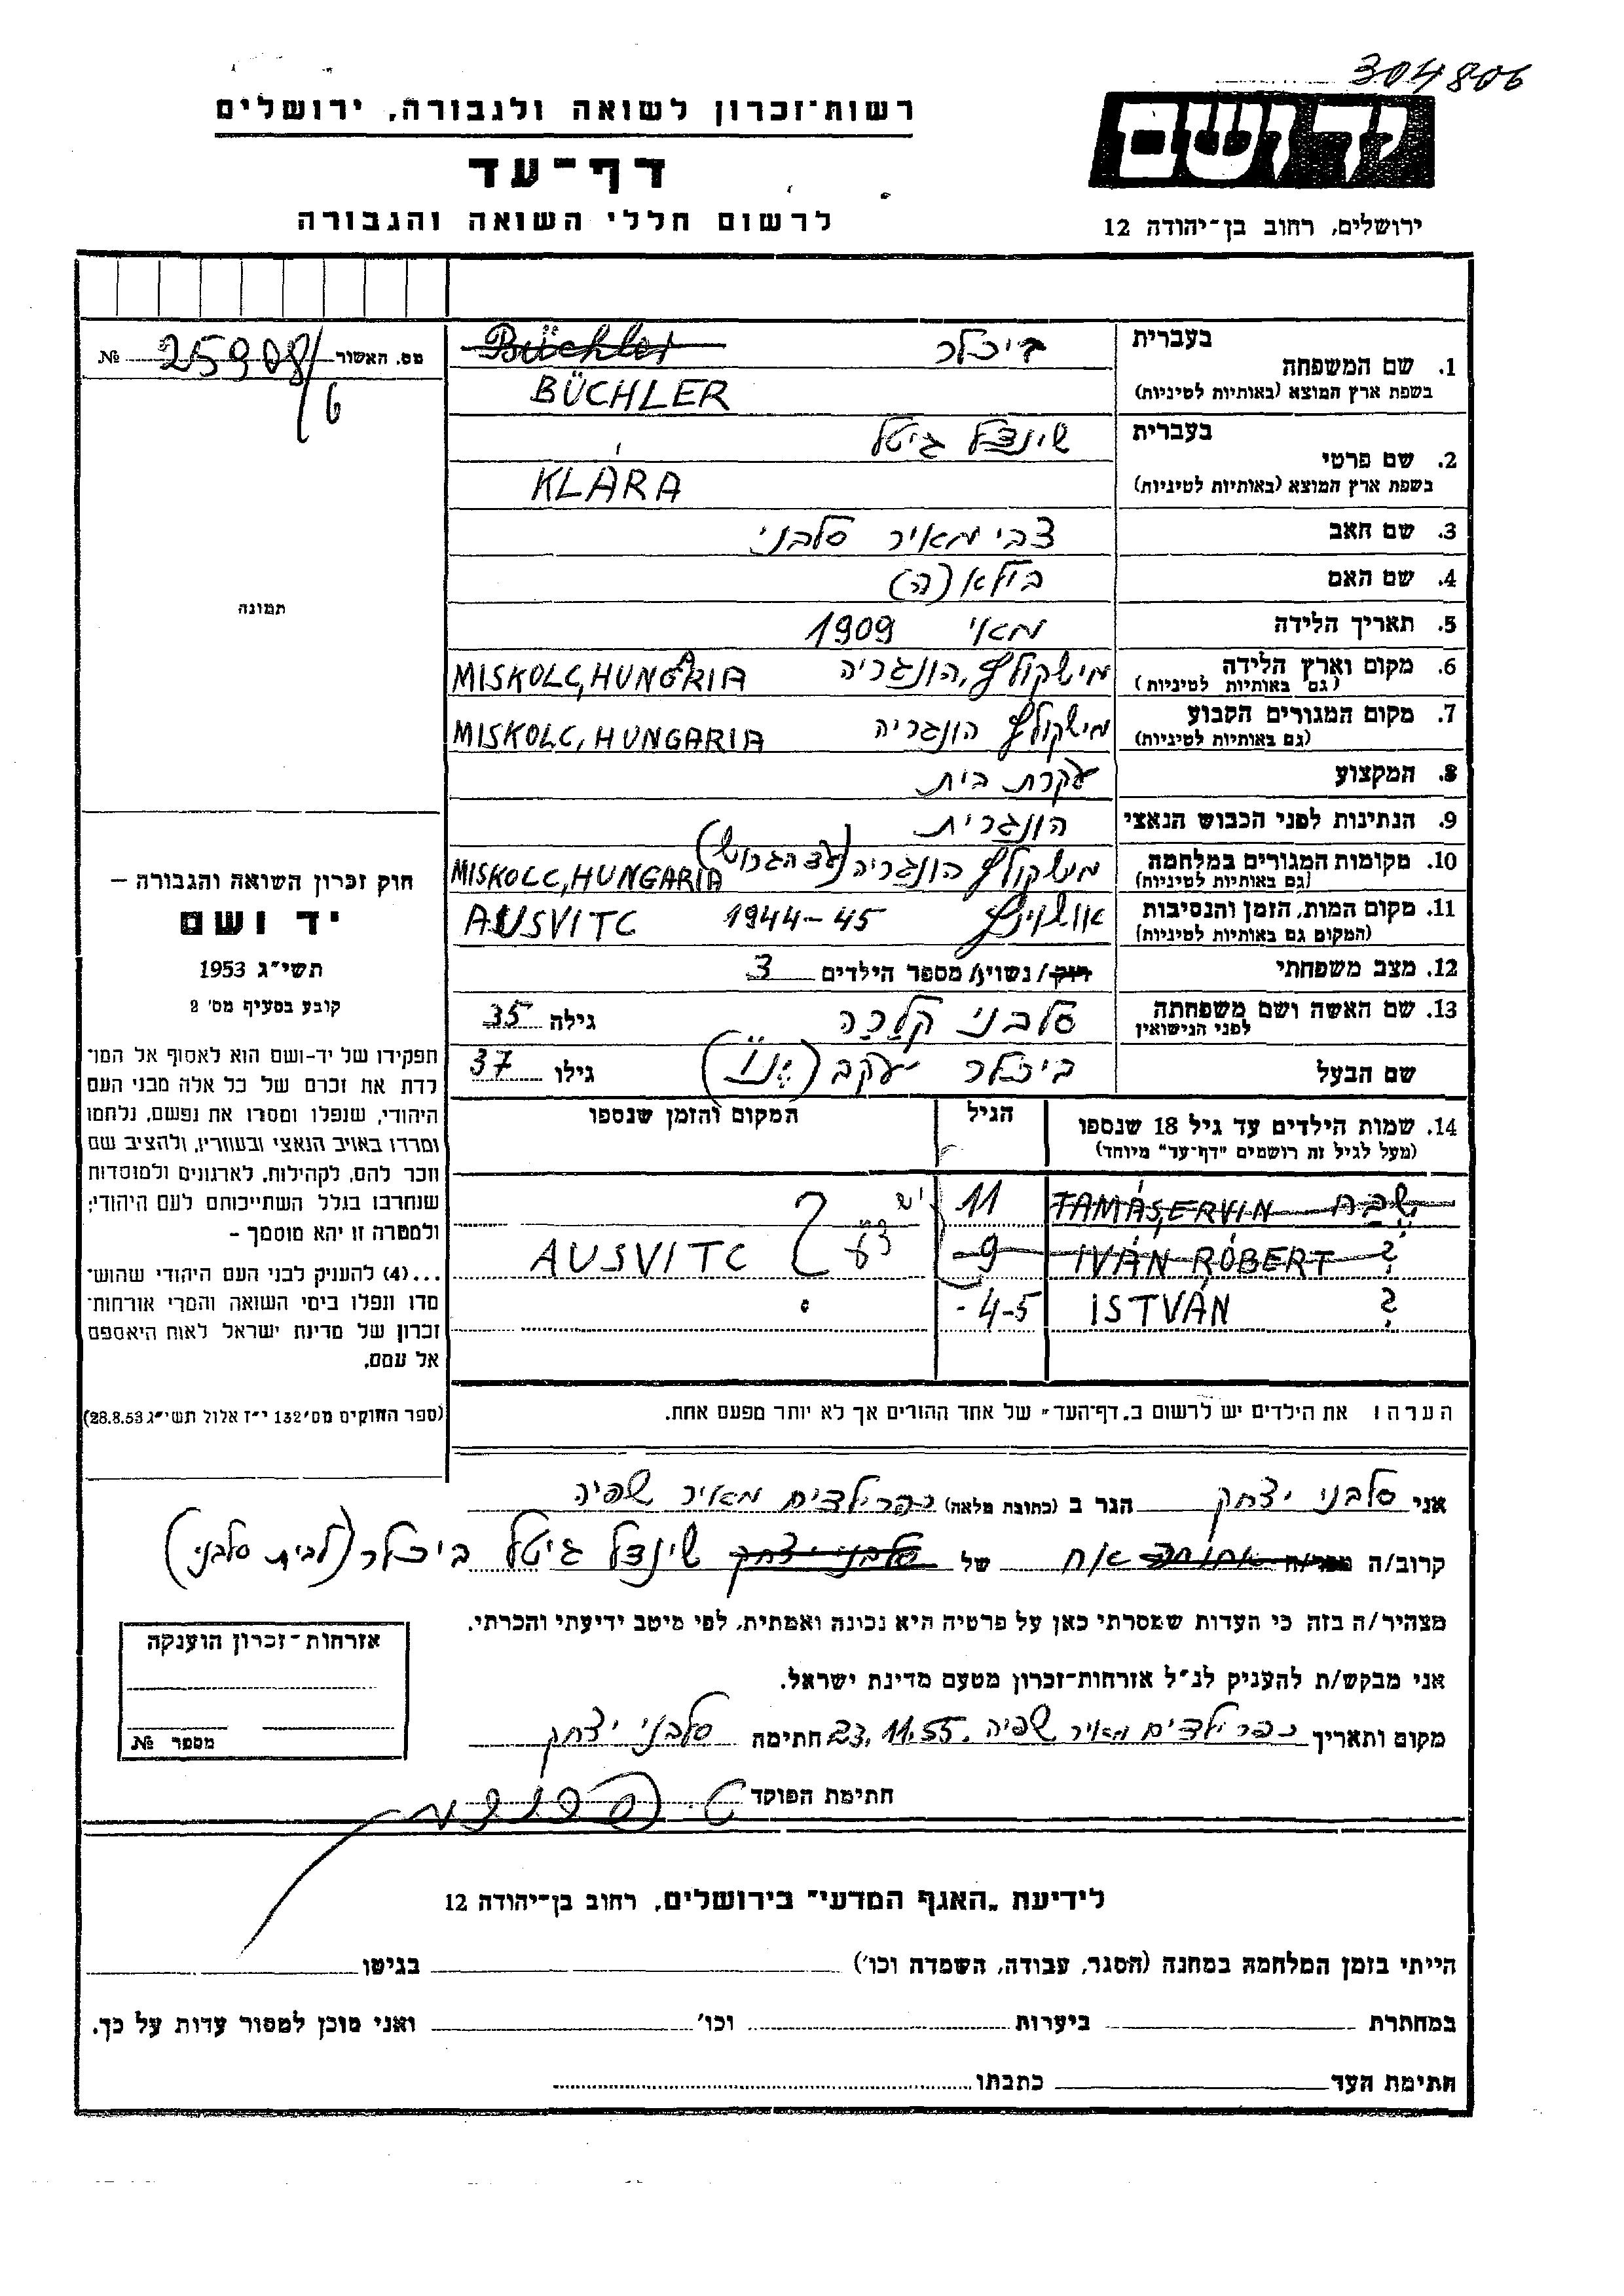 304806
רשות־זכרון לשואה ולגבורה, ירושלים
יד ושם
דף־עד
לרשום חללי השואה והגבורה
ירושלים, רחוב בן־יהודה 12
מס. האשור 25908/6 №
תמונה
בעברית ביכלר Büchler
1. שם המשפחה
בשפת ארץ המוצא (באותיות לטיניות) BÜCHLER
בעברית שינדל גיטל
2. שם פרטי
בשפת ארץ המוצא (באותיות לטיניות) KLÁRA
3. שם האב צבי מאיר סלבני
4. שם האם בילא (ה)
5. תאריך הלידה מאי 1909
6. מקום וארץ הלידה מישקולץ, הונגריה MISKOLC, HUNGARIA
(גם באותיות לטיניות)
7. מקום המגורים הקבוע מישקולץ הונגריה MISKOLC, HUNGARIA
(גם באותיות לטיניות)
8. המקצוע עקרת בית
9. הנתינות לפני הכבוש הנאצי הונגרית
10. מקומות המגורים במלחמה מישקולץ הונגריה (עד הגרוש) MISKOLC, HUNGARIA
(גם באותיות לטיניות)
11. מקום המות, הזמן והנסיבות אושויץ 1944-45 AUSVITC
(המקום גם באותיות לטיניות)
12. מצב משפחתי רוק/נשוי/ מספר הילדים 3
13. שם האשה ושם משפחתה סלבני קלרה גילה 35
לפני הנישואין
שם הבעל ביכלר יעקב גילו 37
14. שמות הילדים עד גיל 18 שנספו הגיל המקום והזמן שנספו
(מעל לגיל זה רושמים "דף־עד" מיוחד)
TAMÁS, ERVIN 11
? IVÁN RÓBERT 9- AUSVITC
? ISTVÁN 4-5-
הערה: את הילדים יש לרשום ב„דף־העד" של אחד ההורים אך לא יותר מפעם אחת.
חוק זכרון השואה והגבורה –
יד ושם
תשי"ג 1953
קובע בסעיף מס' 2
תפקידו של יד-ושם הוא לאסוף אל המו־
לדת את זכרם של כל אלה מבני העם
היהודי, שנפלו ומסרו את נפשם, נלחמו
ומרדו באויב הנאצי ובעוזריו, ולהציב שם
וזכר להם, לקהילות, לארגונים ולמוסדות
שנחרבו בגלל השתייכותם לעם היהודי;
ולמטרה זו יהא מוסמך –
...(4) להעניק לבני העם היהודי שהוש־
מדו ונפלו בימי השואה והמרי אזרחות־
זכרון של מדינת ישראל לאות היאספם
אל עמם.
(ספר החוקים מס' 132 י"ז אלול תשי"ג 28.8.53)
אני סלבני יצחק הגר ב (כתובת מלאה) כפר ילדים מאיר שפיה
קרוב/ה מכר/ה אח של סלבני יצחק שינדל גיטל ביכלר (לבית סלבני)
מצהיר/ה בזה כי העדות שמסרתי כאן על פרטיה היא נכונה ואמתית, לפי מיטב ידיעתי והכרתי.
אני מבקש/ת להעניק לנ"ל אזרחות־זכרון מטעם מדינת ישראל.
מקום ותאריך כפר ילדים מאיר שפיה. 23.11.55 חתימה סלבני יצחק
חתימת הפוקד
אזרחות־זכרון הוענקה
מספר №
לידיעת „האגף המדעי" בירושלים, רחוב בן־יהודה 12
הייתי בזמן המלחמה במחנה (הסגר, עבודה, השמדה וכו') בגיטו
במחתרת ביערות וכו' ואני מוכן למסור עדות על כך.
חתימת העד כתבתו